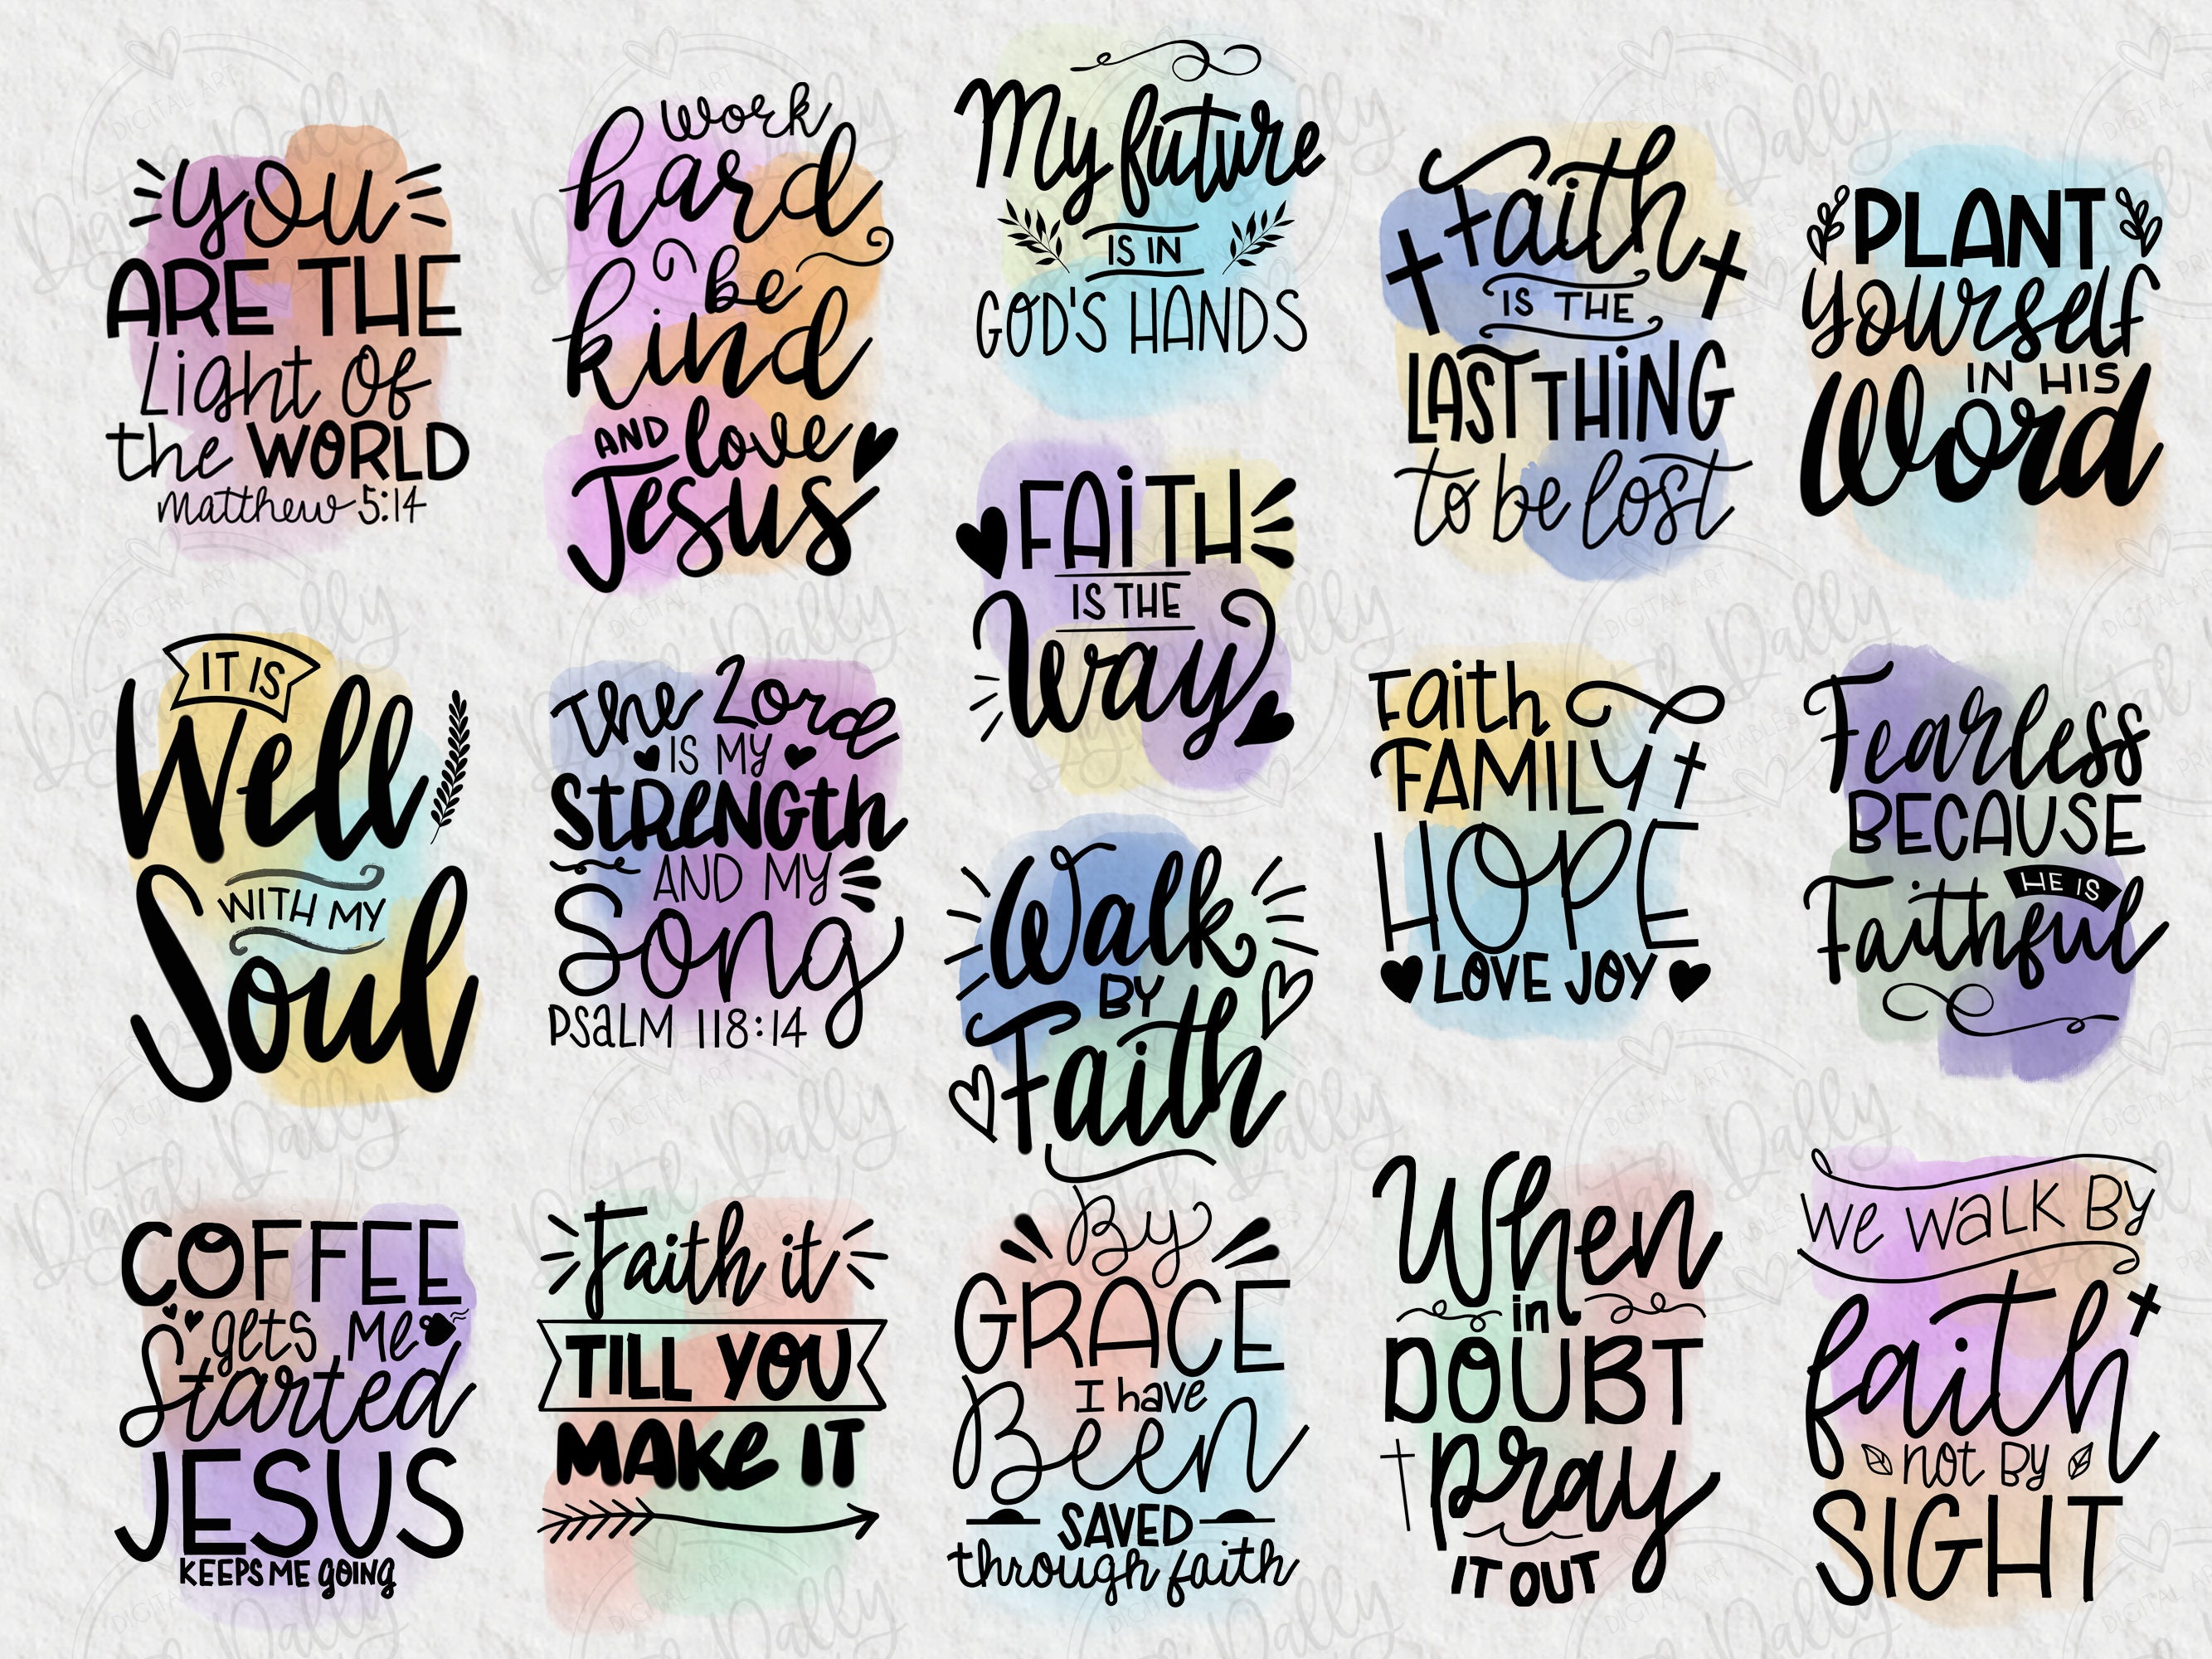 you
ARE THE
Light Of
the WORLD
Matthew 5:14
work
hard
be
kind
AND love
Jesus
My future
IS IN
GOD'S HANDS
Faith
IS THE
LAST THING
to be lost
PLANT
yourself
IN HIS
Word
FAiTH
IS THE
Way
IT IS
Well
WITH MY
Soul
The Lord
IS MY
STRENGTH
AND MY
Song
PSALM 118:14
Walk
BY
Faith
Faith
FAMILY
HOPE
LOVE JOY
Fearless
BECAUSE
HE IS
Faithful
COFFEE
gets Me
Started
JESUS
KEEPS ME GOING
Faith it
TILL YOU
MAKe IT
By
GRACE
I have
Been
SAVED
through faith
When
in
DOUBT
pray
IT OUT
We WaLK By
faith
not By
SIGHT
Digital Dally
DIGITAL ART